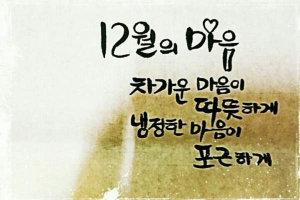 12월의 마음
차가운 마음이
따뜻하게
냉정한 마음이
포근하게